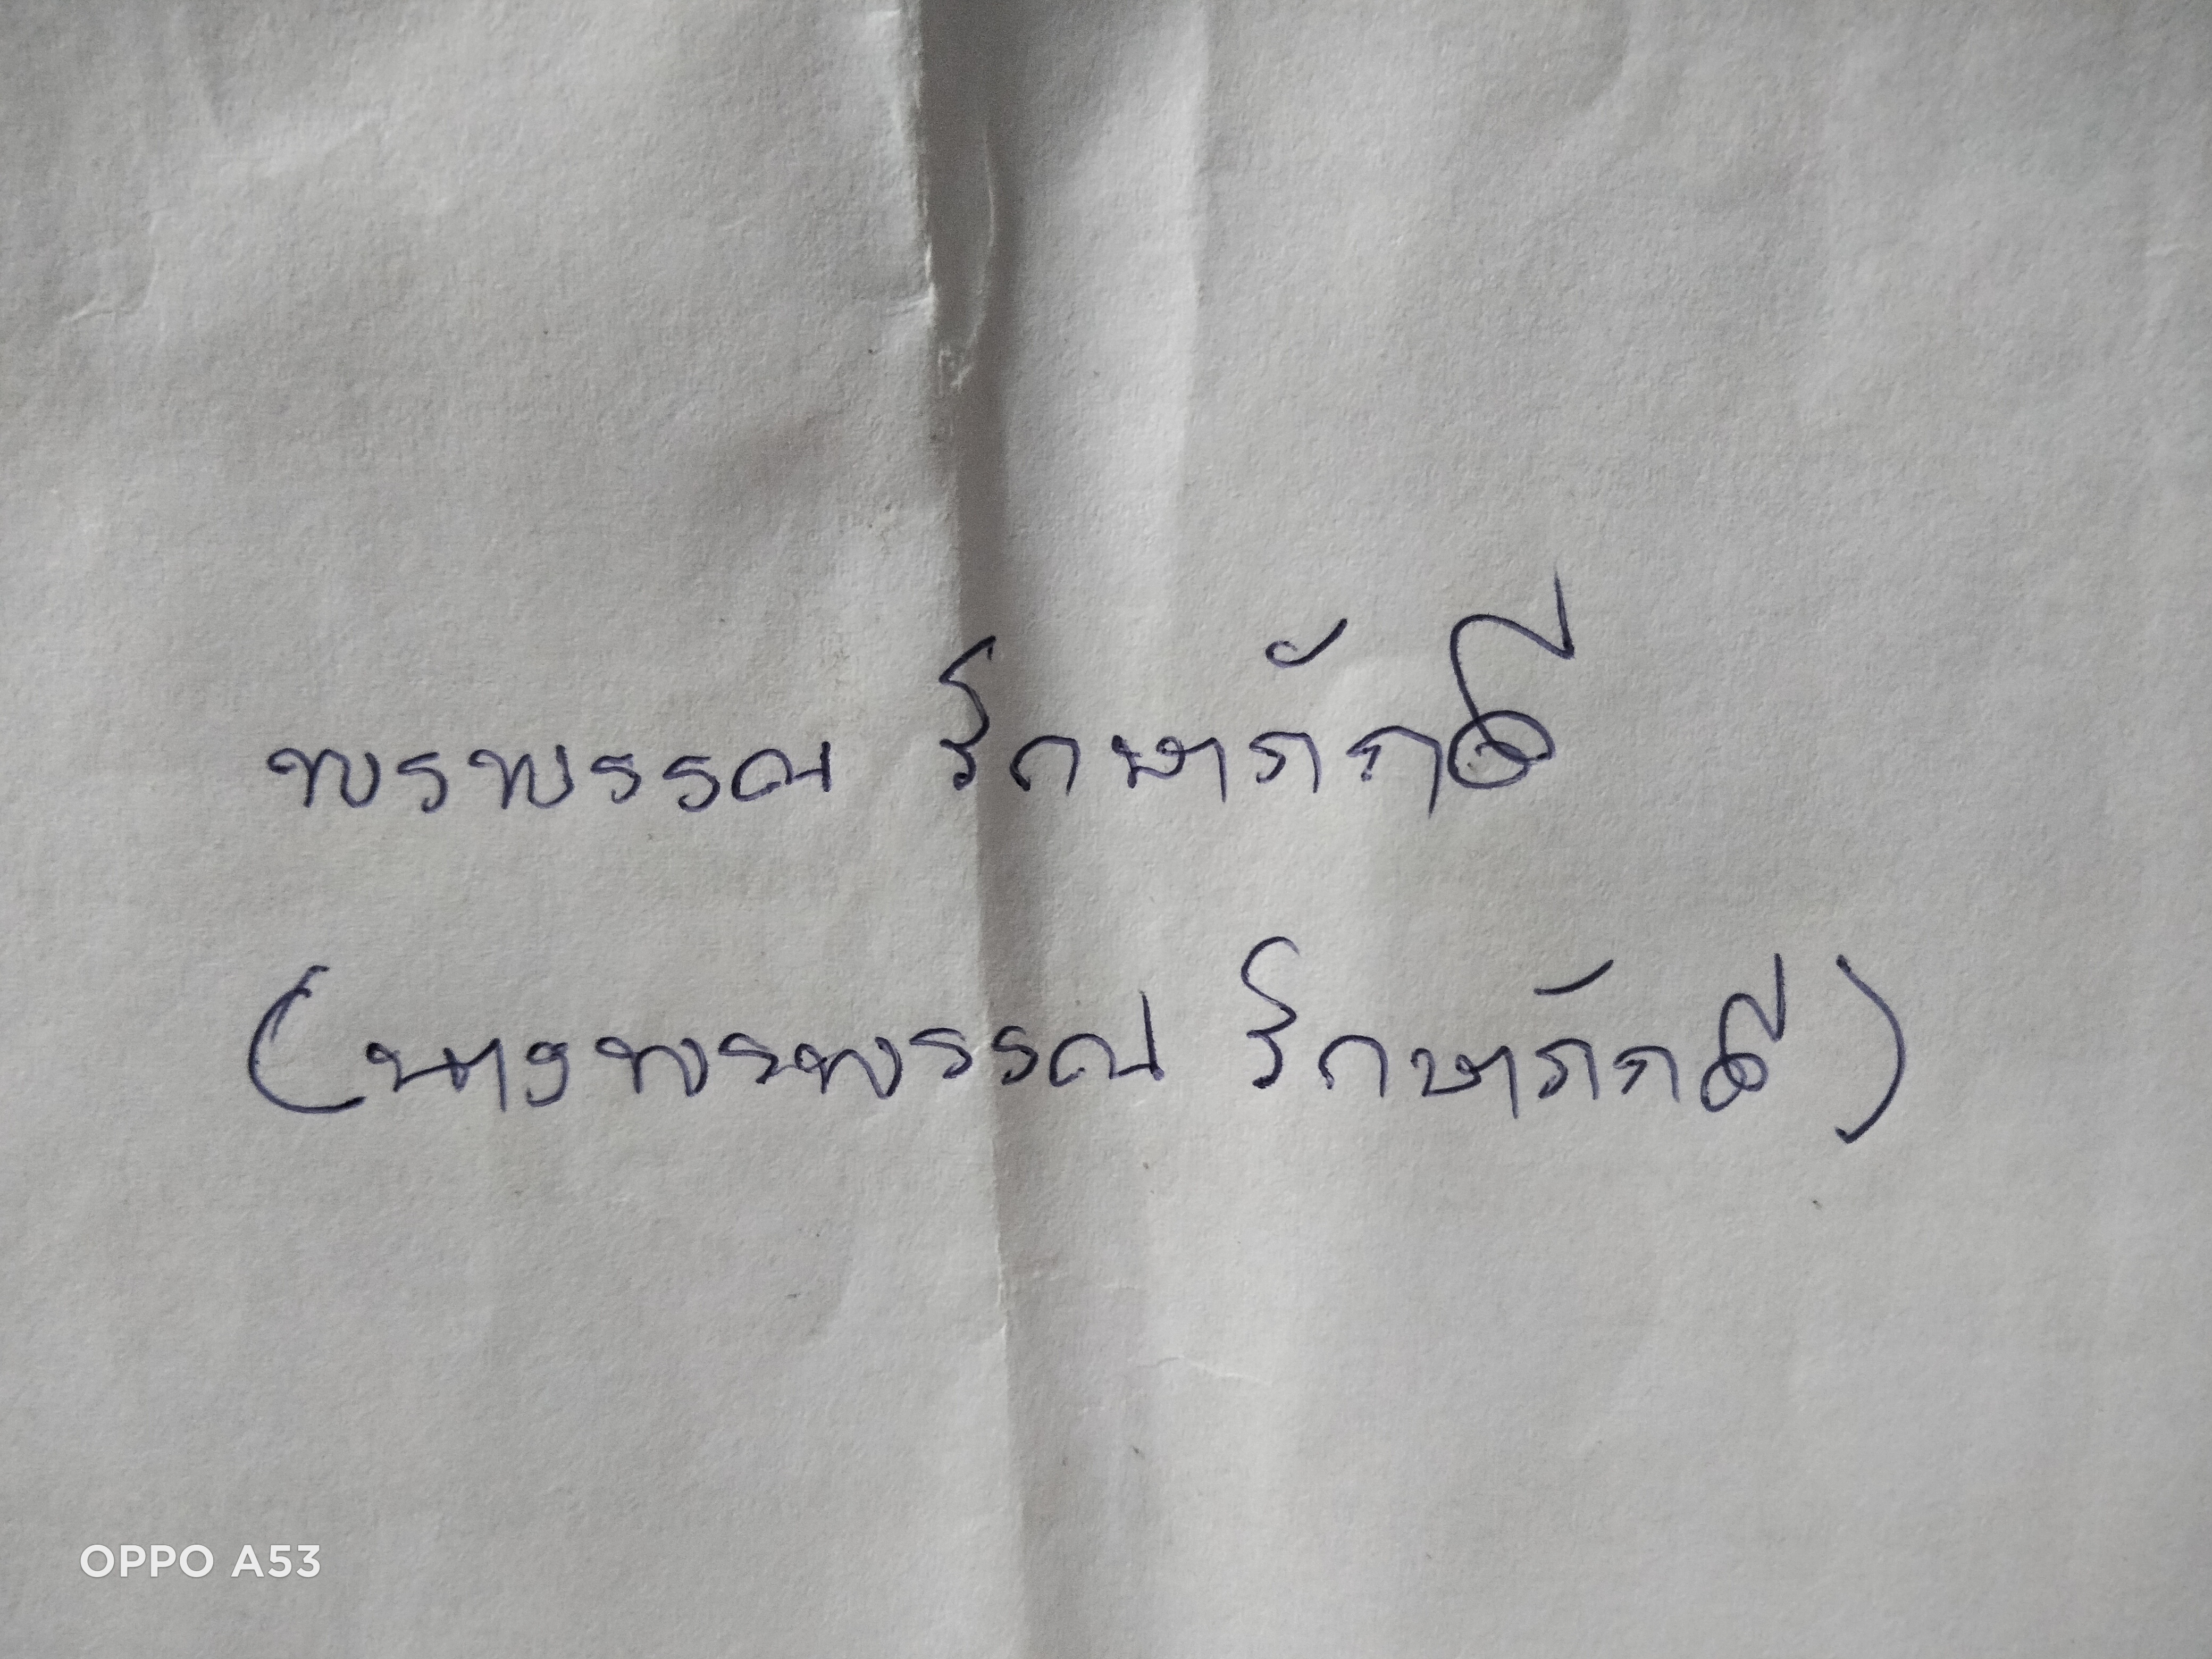 พรพรรณ รักษาภักดี
(นางพรพรรณ รักษาภักดี)
OPPO A53